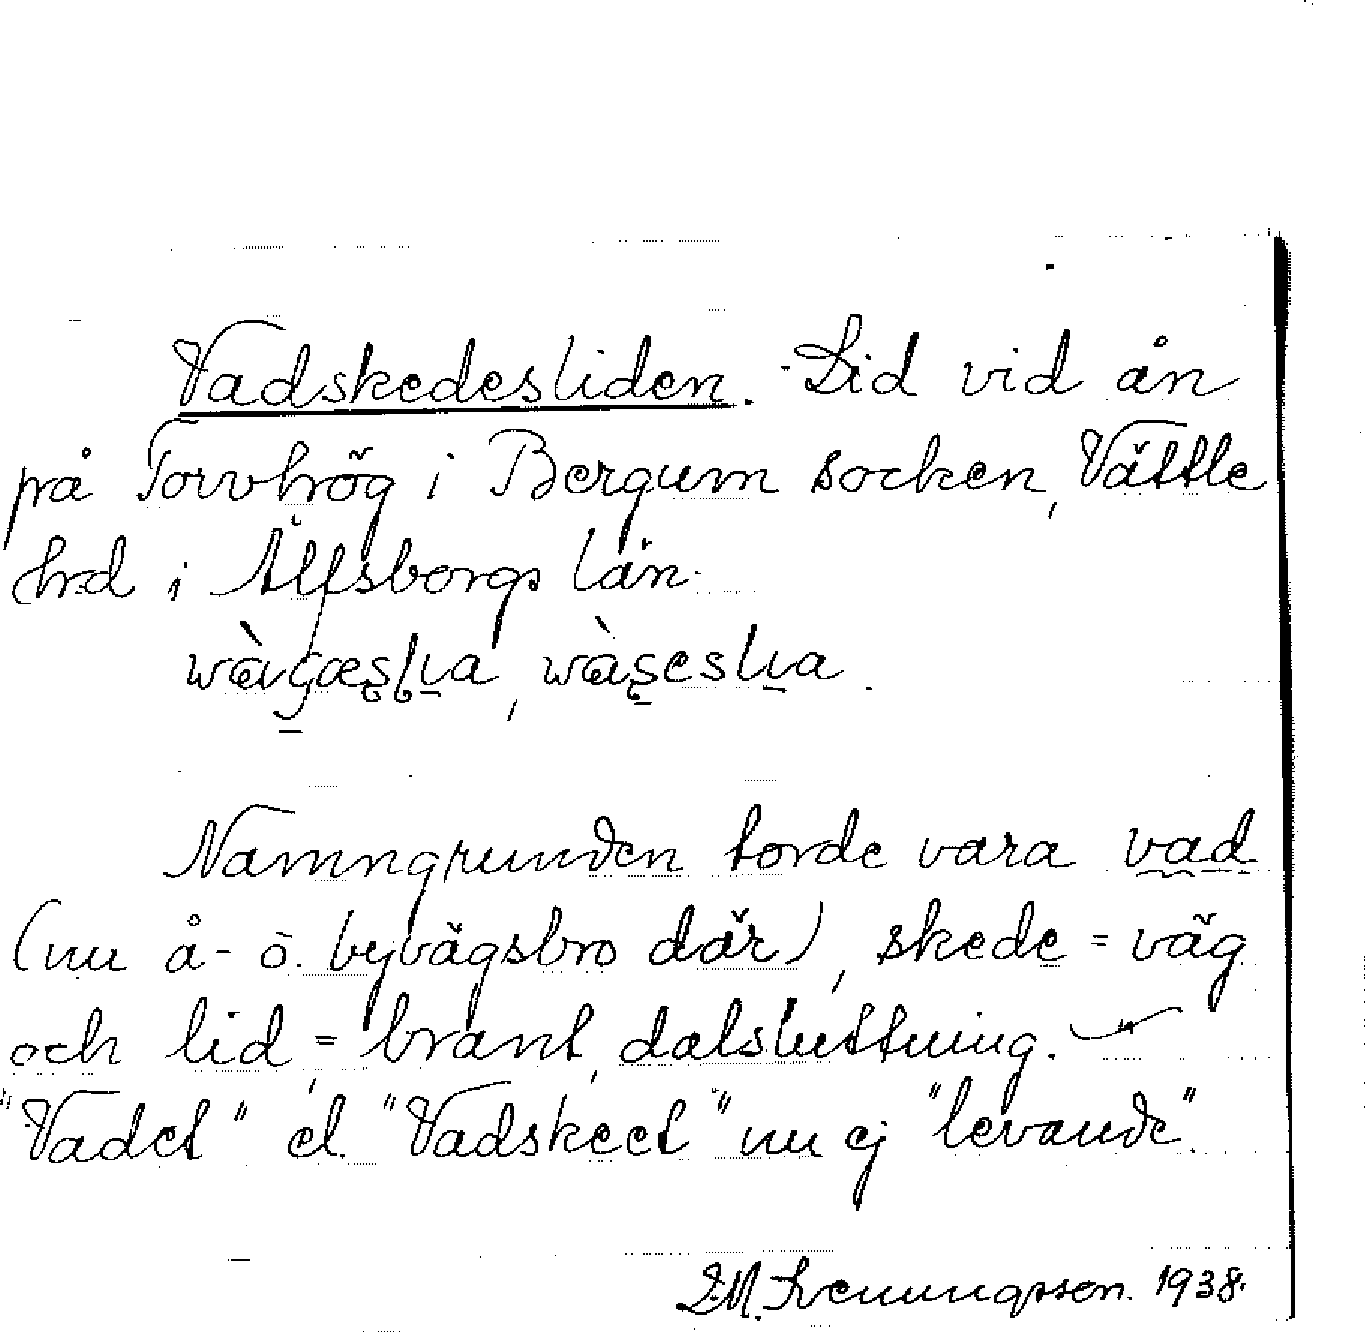 Vadskedesliden. - Lid vid ån
på Torvhög i Bergum socken, Vättle
hrd i Älfsborgs län.
Namngrunden torde vara vad
(nu å- o. byvägsbro där), skede = väg
och lid = brant, dalsluttning. —"—
"Vadet" el. "Vadskeet" nu ej "levande".
1938.